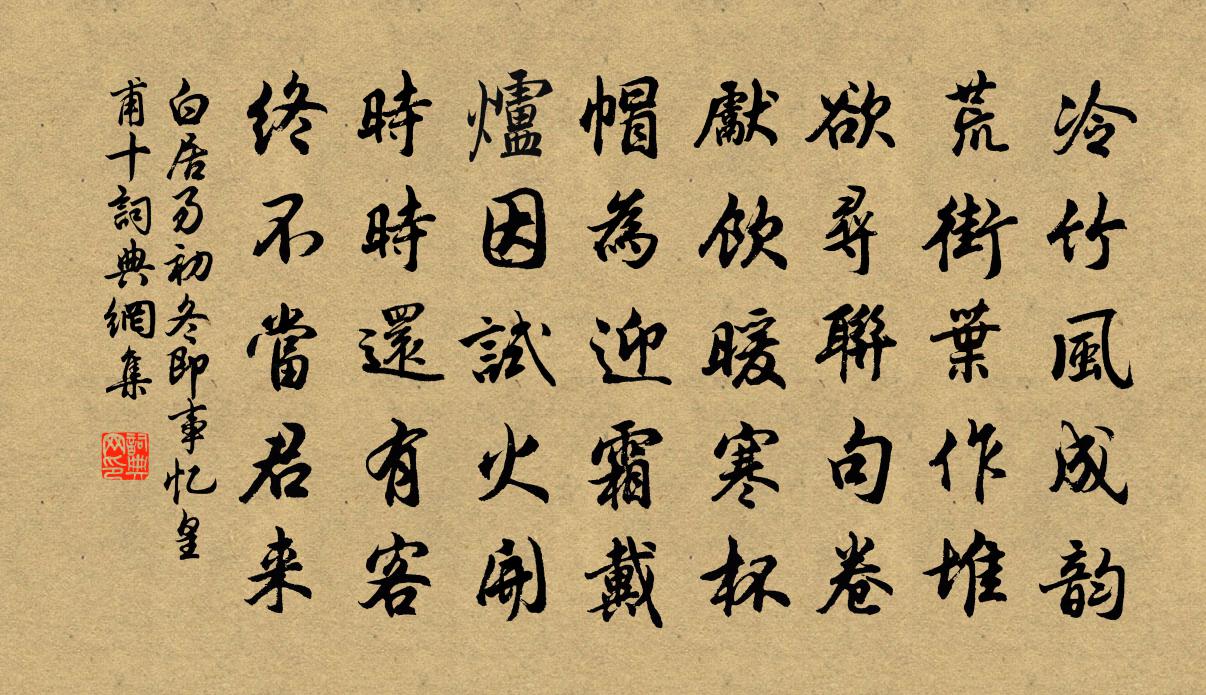 冷竹風成韵
荒街葉作堆
欲尋聯句卷
先飲暖寒杯
帽為迎霜戴
爐因試火開
時時還有客
終不當君来
白居易初冬即事忆皇
甫十詞典網集
詞典网印